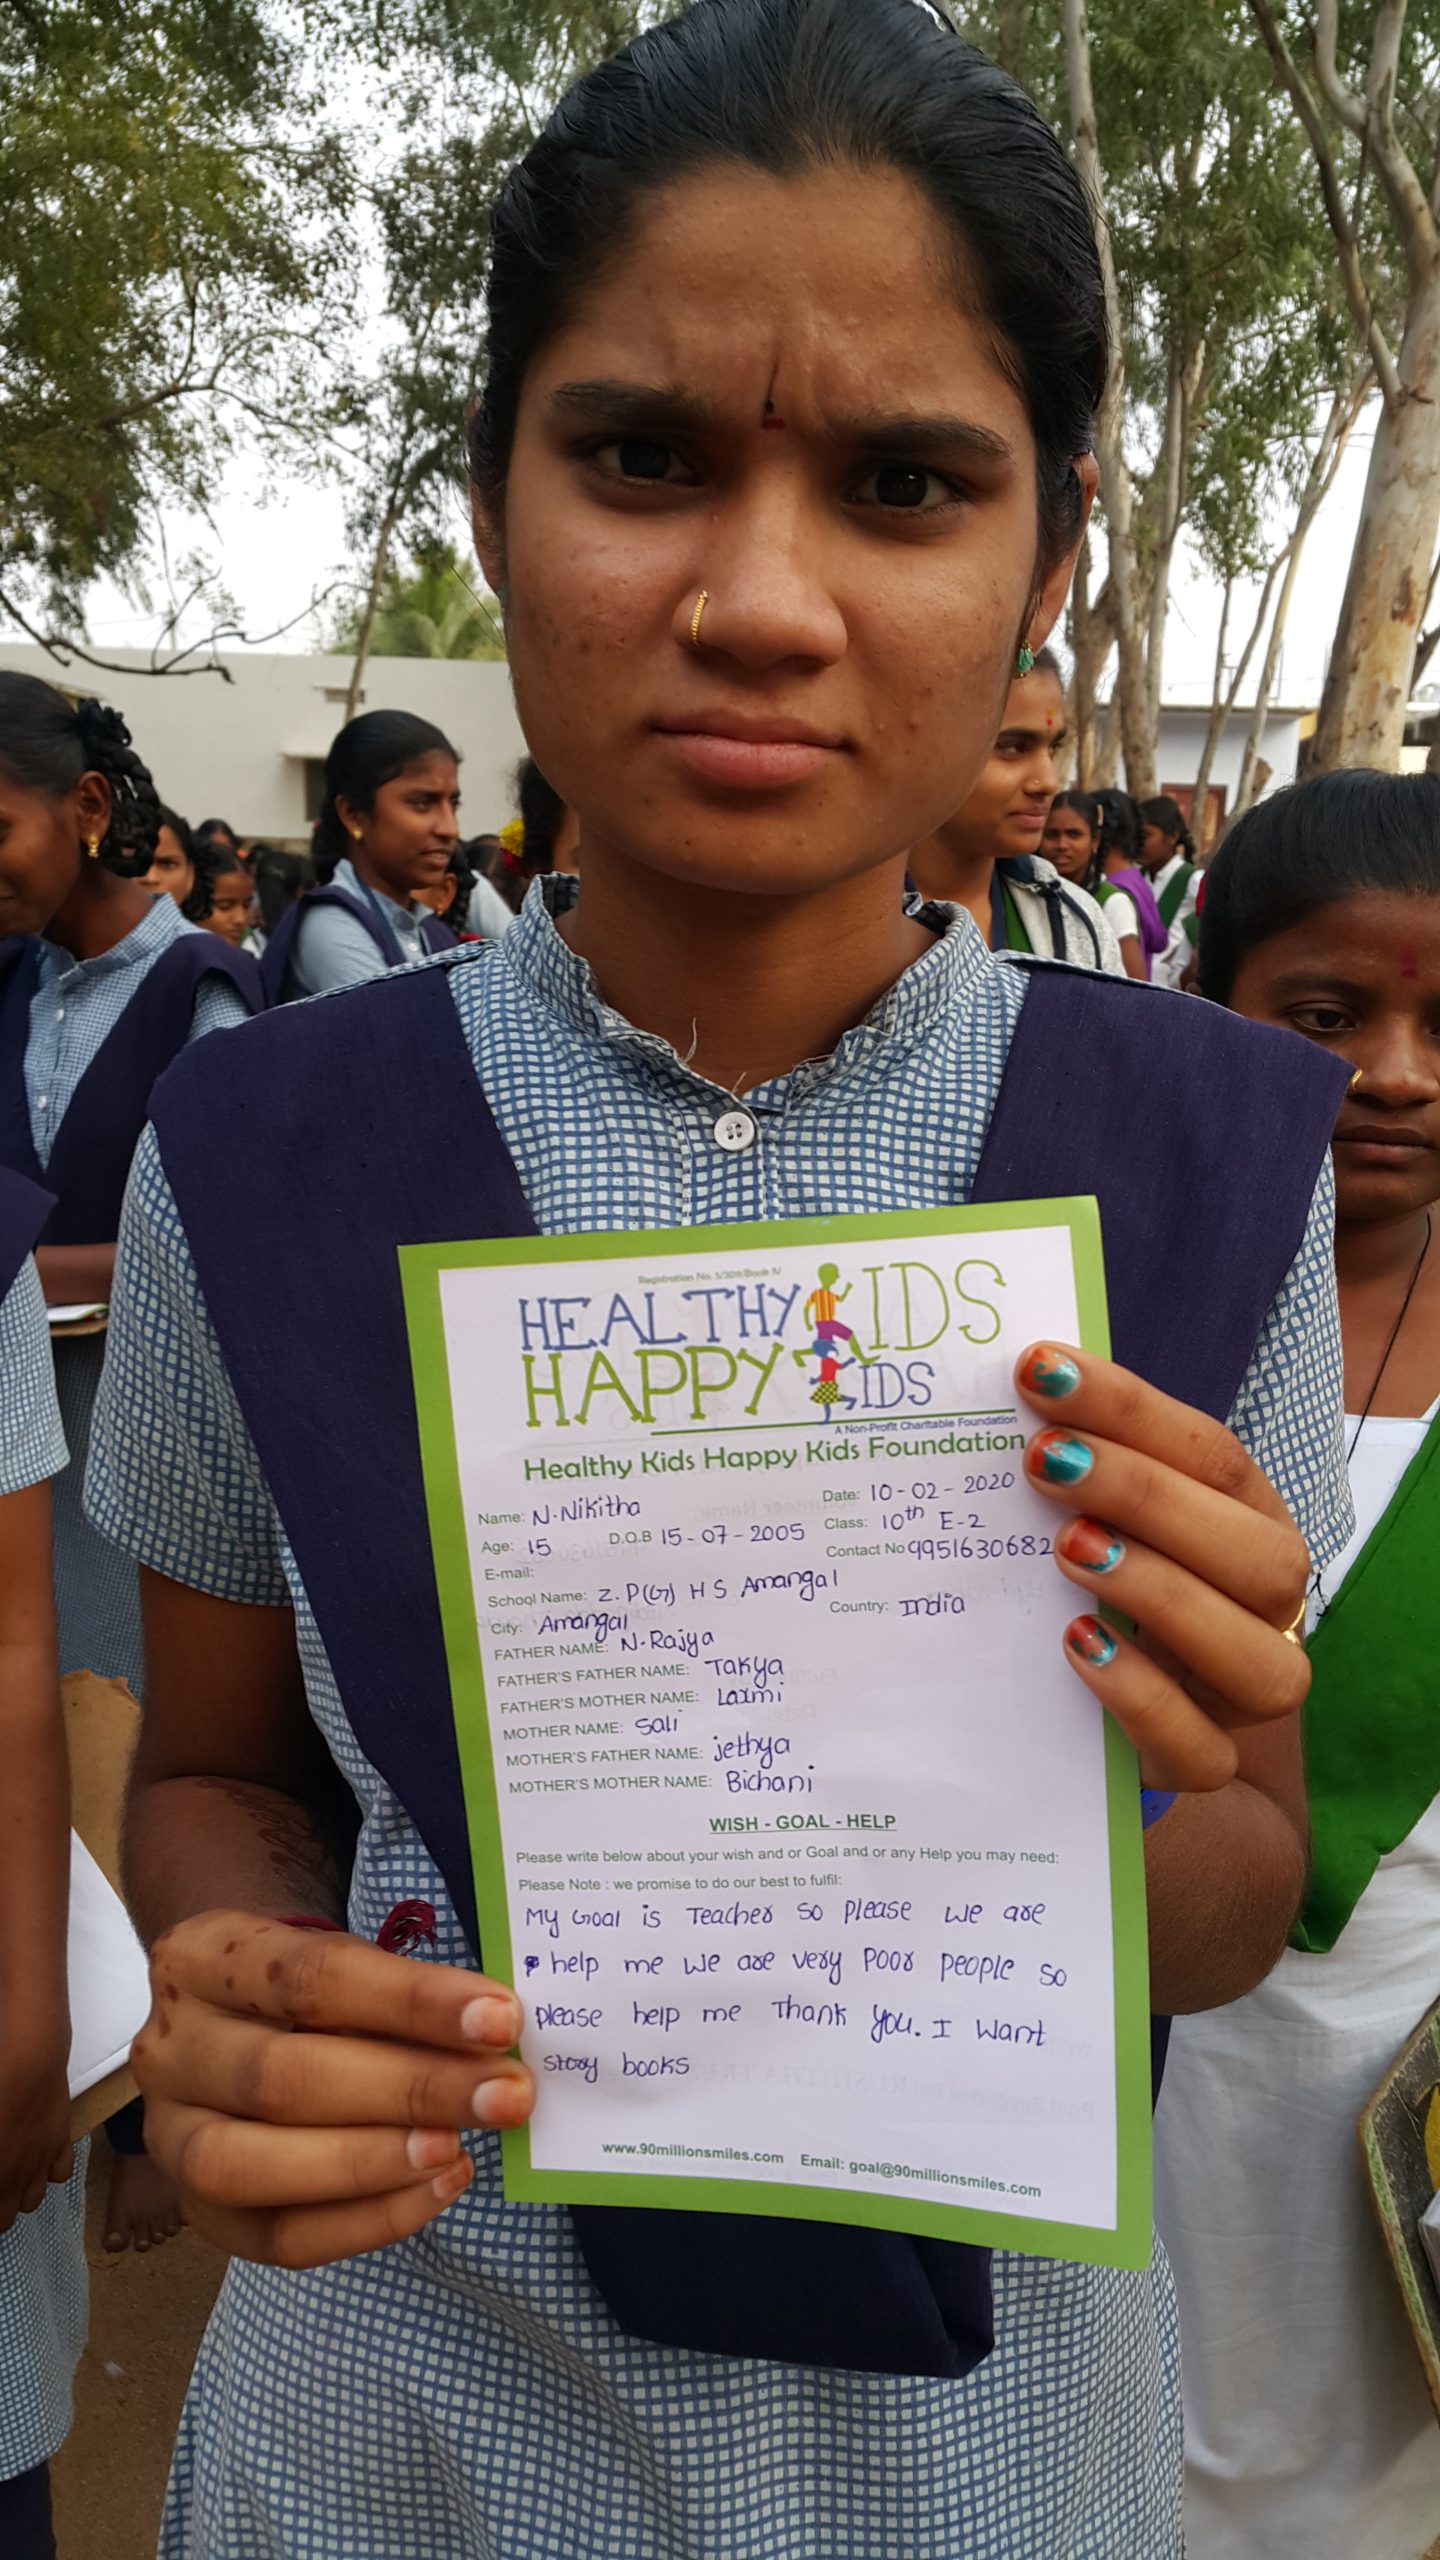 Registration No. 5/2011/Book IV
HEALTHY KIDS
HAPPY KIDS
A Non-Profit Charitable Foundation
Healthy Kids Happy Kids Foundation
Name: N.Nikitha Date: 10-02-2020
Age: 15 D.O.B 15-07-2005 Class: 10th E-2
E-mail: Contact No 9951630682
School Name: Z.P(G) H S Amangal
City: Amangal Country: India
FATHER NAME: N.Rajya
FATHER'S FATHER NAME: Takya
FATHER'S MOTHER NAME: Laxmi
MOTHER NAME: Sali
MOTHER'S FATHER NAME: jethya
MOTHER'S MOTHER NAME: Bichani
WISH - GOAL - HELP
Please write below about your wish and or Goal and or any Help you may need:
Please Note : we promise to do our best to fulfil:
My Goal is Teacher so please we are
help me we are very poor people so
please help me Thank you. I want
story books
www.90millionsmiles.com Email: goal@90millionsmiles.com